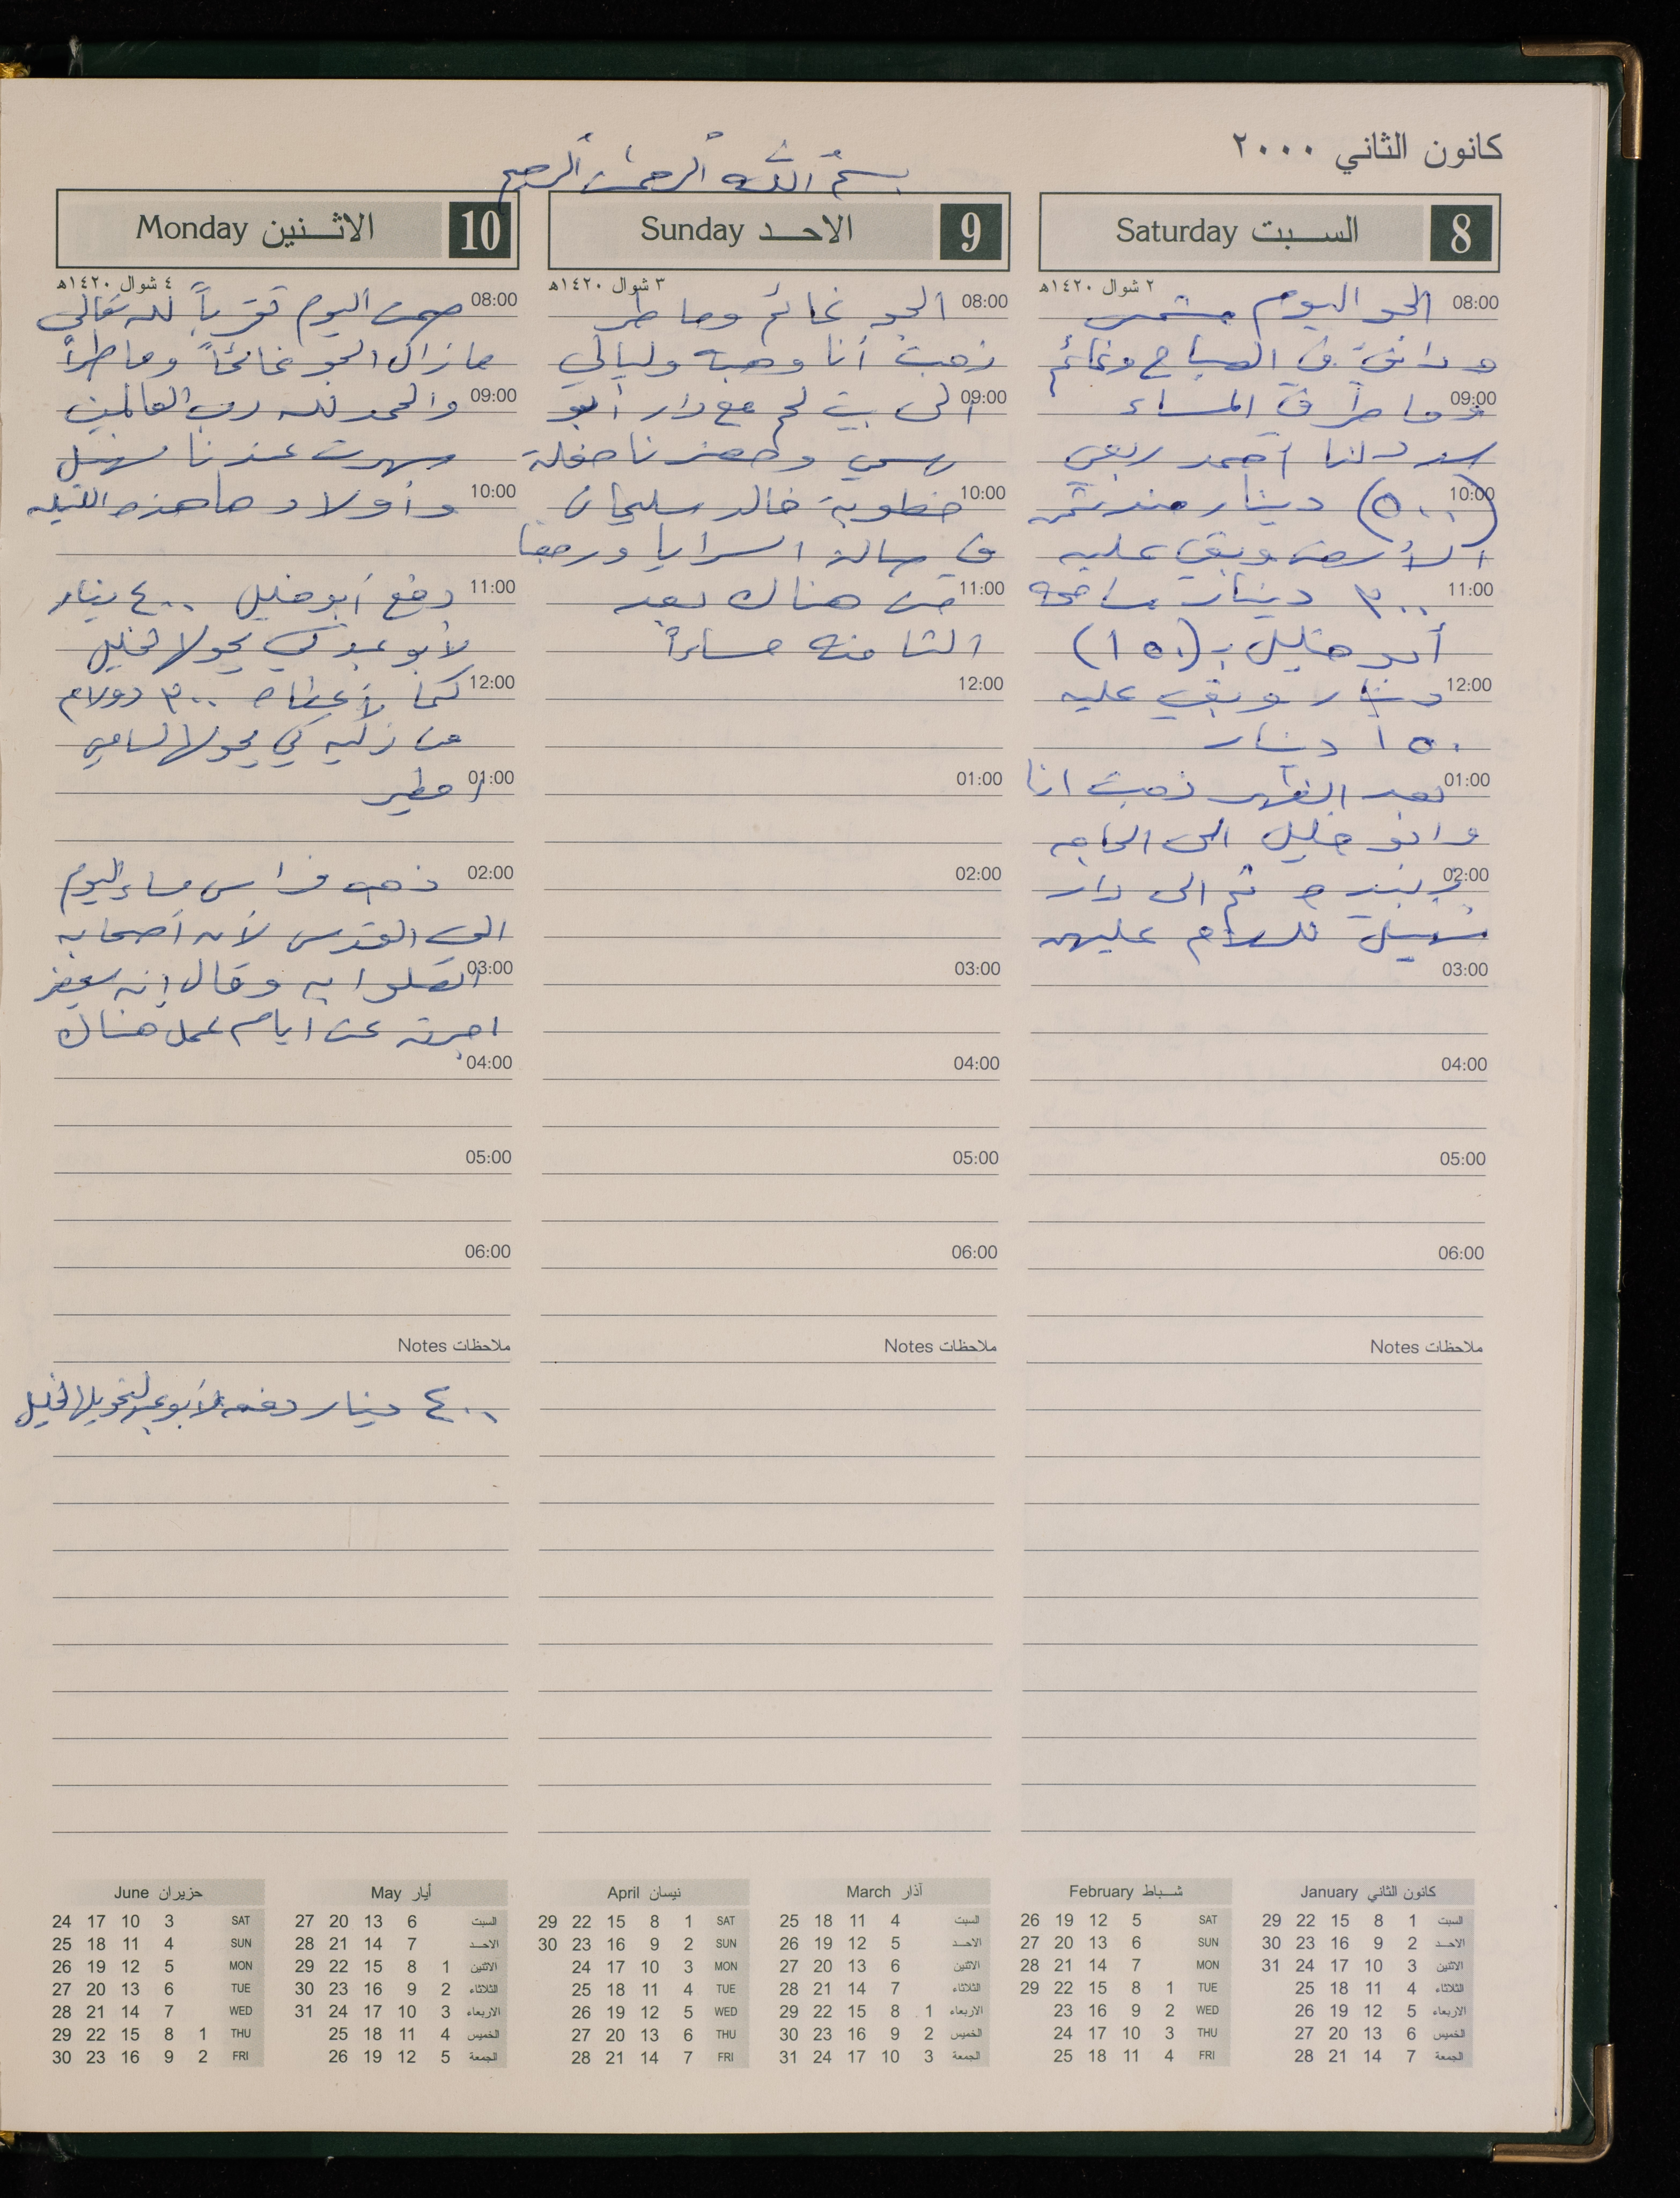 كانون الثاني ٢٠٠٠
بسم الله الرحمن الرحيم
8 السبت Saturday
٢ شوال ١٤٢٠هـ
08:00 الجو اليوم مشمس
ودافئ في الصباح وغائم
09:00 وماطر في المساء
سدد لنا أحمد ربعي
10:00 (٥٠٠) دينار من ثمن
الأرض وبقي عليه
11:00 ٣٠٠ دينار سامحه
أبو خليل بـ (١٥٠)
12:00 دينار وبقي عليه
١٥٠ دينار
01:00 بعد الظهر ذهبت انا
وابو خليل الى الحاجه
02:00 ثم الى دار
سهيل للسلام عليهم
03:00
04:00
05:00
06:00
ملاحظات Notes
9 الاحد Sunday
٣ شوال ١٤٢٠هـ
08:00 الجو غائم وماطر
ذهبت أنا وهبه وليالي
09:00 الى بيت لحم مع دار أبو
وحضرنا حفلة
10:00 خطوبة خالد سليمان
في صالة السرايا ورجعنا
11:00 من هناك بعد
الثامنه مساءً
12:00
01:00
02:00
03:00
04:00
05:00
06:00
ملاحظات Notes
10 الاثنين Monday
٤ شوال ١٤٢٠هـ
08:00 صمت اليوم تقرباً لله تعالى
مازال الجو غائماً وماطراً
09:00 والحمد لله رب العالمين
سهرت عندنا سهيل
10:00 وأولادها هذه الليله
11:00 دفع أبو خليل ٤٠٠ دينار
لأبو عبد كي يحولها لخليل
12:00 كما أعطاه ٣٠٠ دولار
من زكيه كي يحولها لسامي
01:00 امطير
02:00 ذهب فراس مساء اليوم
الى القدس لأن أصحابه
03:00 اتصلوا به وقال إنه
اجرته عن ايام عمل هناك
04:00
05:00
06:00
ملاحظات Notes
٤٠٠ دينار دفعه لأبو عبد لتحويلها لخليل
كانون الثاني January
السبت 1 8 15 22 29
الاحد 2 9 16 23 30
الاثنين 3 10 17 24 31
الثلاثاء 4 11 18 25
الاربعاء 5 12 19 26
الخميس 6 13 20 27
الجمعة 7 14 21 28
شباط February
SAT 5 12 19 26
SUN 6 13 20 27
MON 7 14 21 28
TUE 1 8 15 22 29
WED 2 9 16 23
THU 3 10 17 24
FRI 4 11 18 25
آذار March
السبت 4 11 18 25
الاحد 5 12 19 26
الاثنين 6 13 20 27
الثلاثاء 7 14 21 28
الاربعاء 1 8 15 22 29
الخميس 2 9 16 23 30
الجمعة 3 10 17 24 31
نيسان April
SAT 1 8 15 22 29
SUN 2 9 16 23 30
MON 3 10 17 24
TUE 4 11 18 25
WED 5 12 19 26
THU 6 13 20 27
FRI 7 14 21 28
أيار May
السبت 6 13 20 27
الاحد 7 14 21 28
الاثنين 1 8 15 22 29
الثلاثاء 2 9 16 23 30
الاربعاء 3 10 17 24 31
الخميس 4 11 18 25
الجمعة 5 12 19 26
حزيران June
SAT 3 10 17 24
SUN 4 11 18 25
MON 5 12 19 26
TUE 6 13 20 27
WED 7 14 21 28
THU 1 8 15 22 29
FRI 2 9 16 23 30